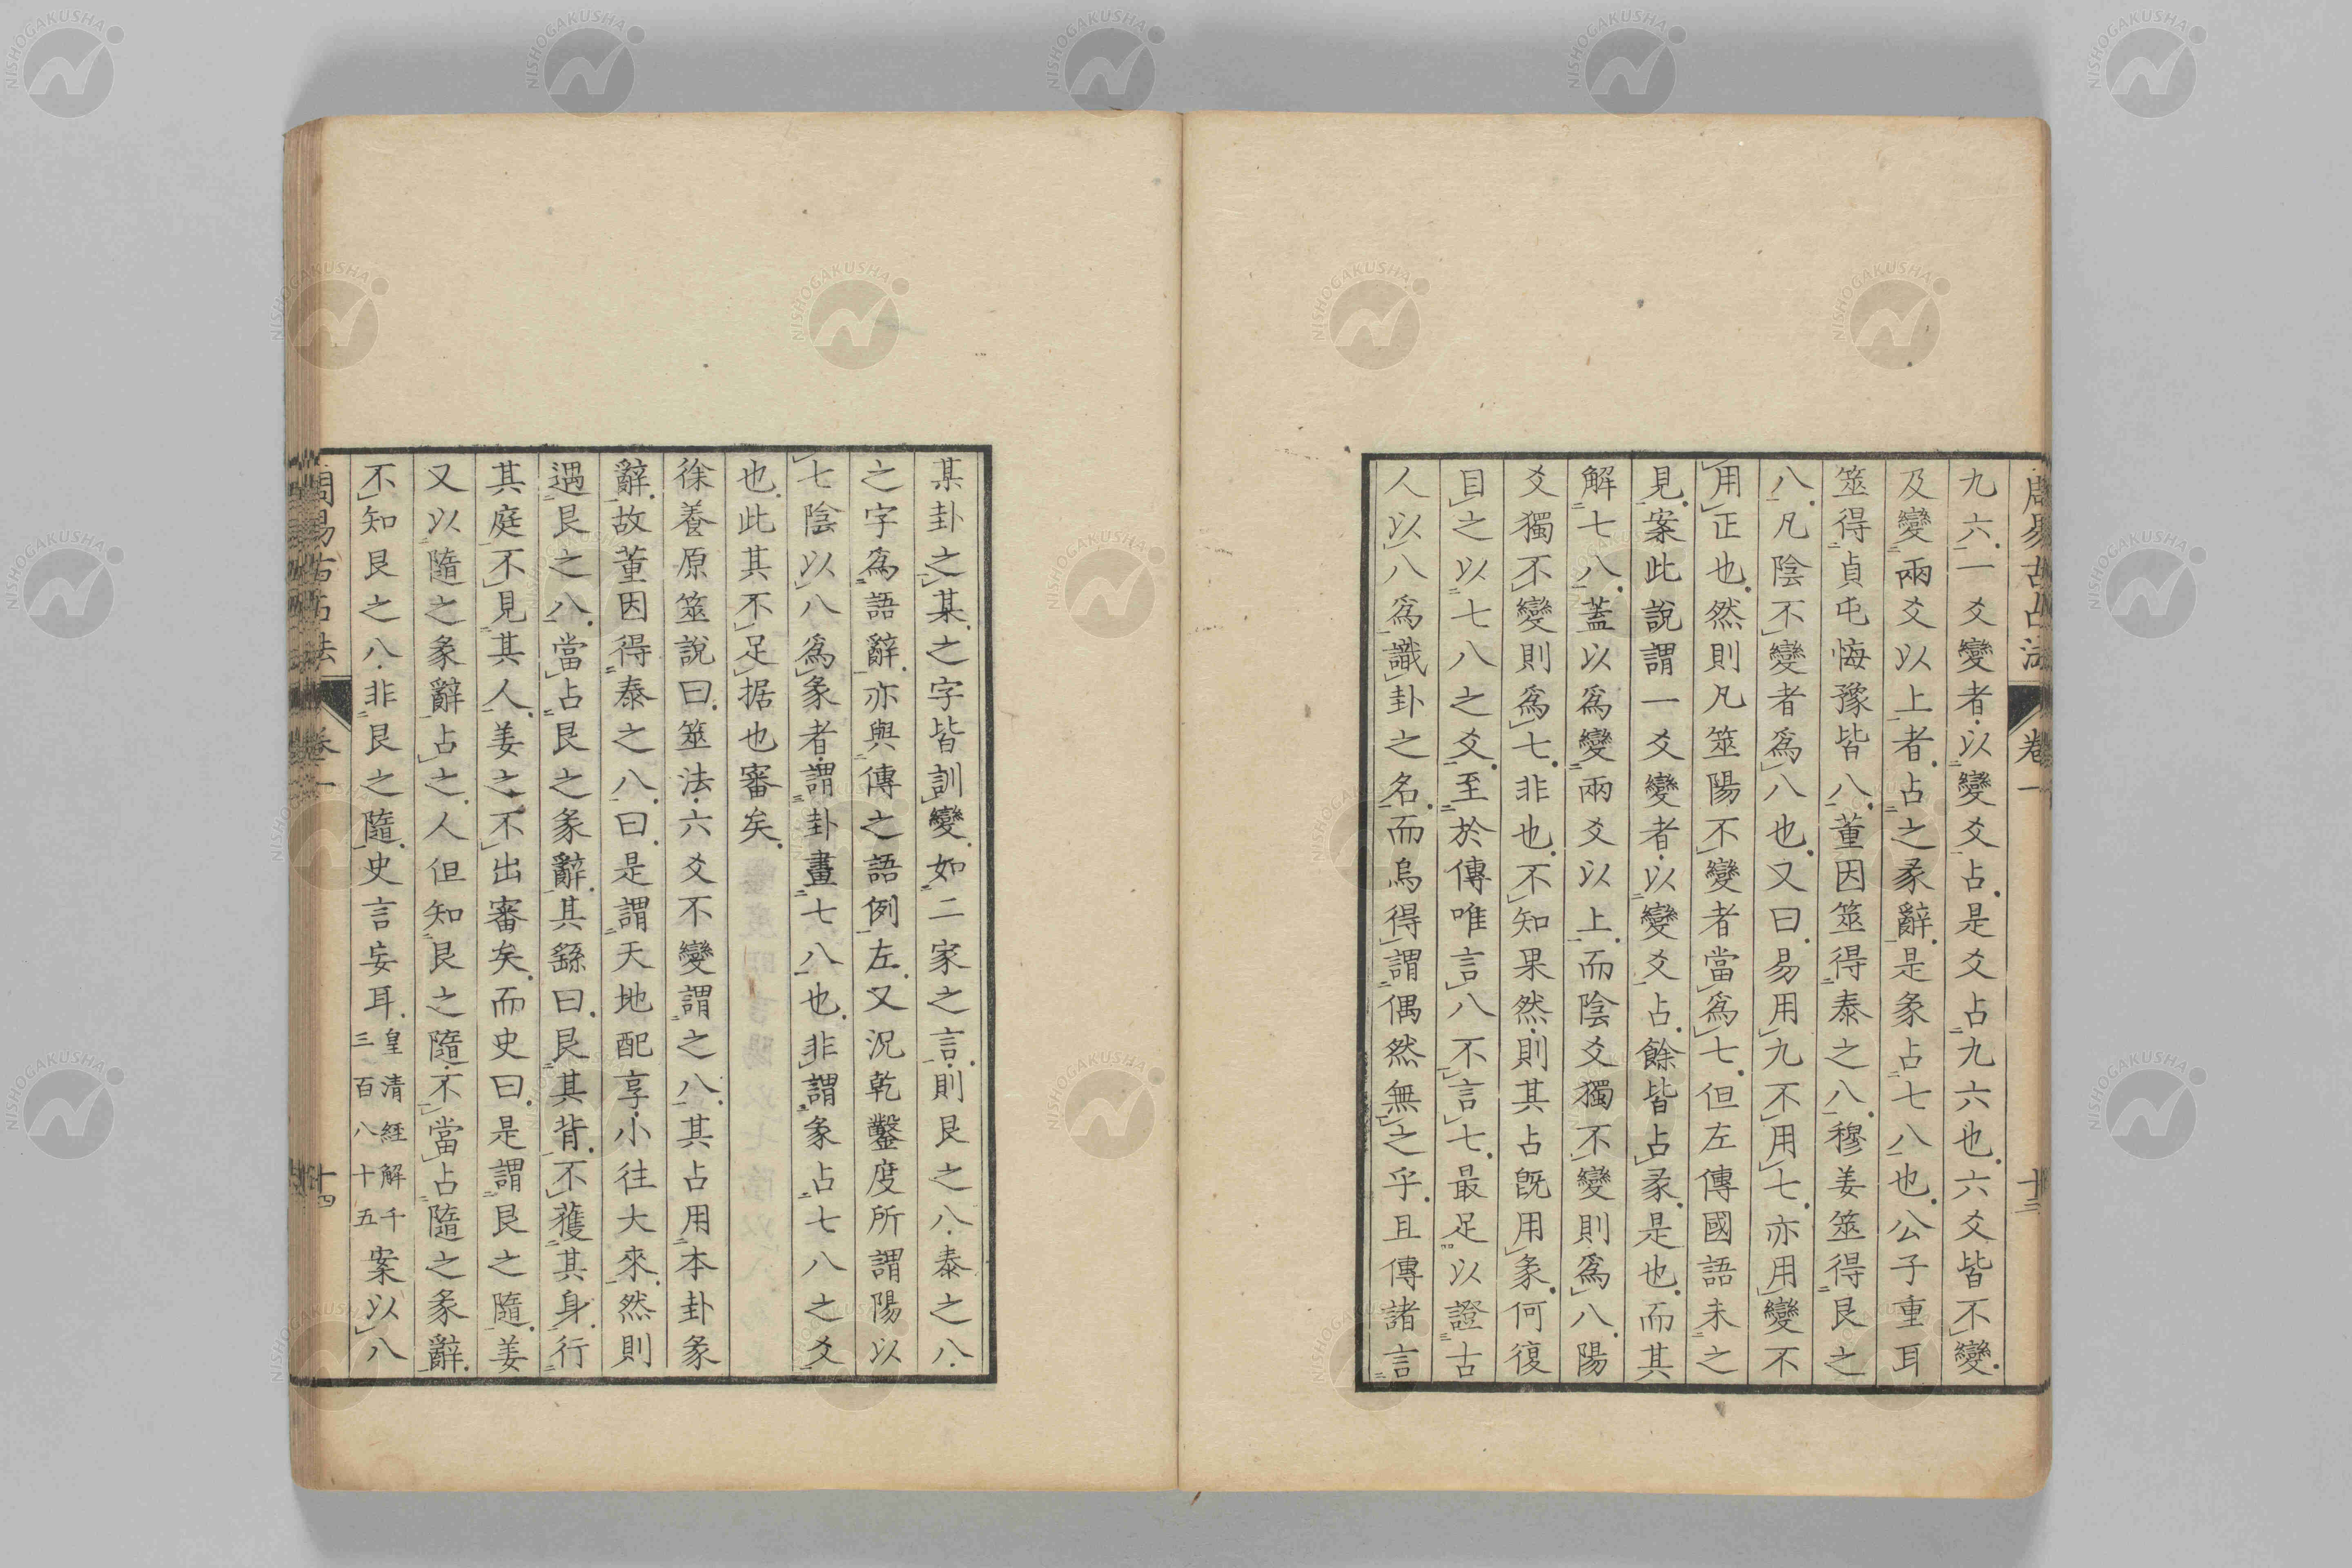 周易古占法 卷一 十三
九六一爻變者以變爻占是爻占九六也六爻皆不變
及變兩爻以上者占之彖辭是彖占七八也公子重耳
筮得貞屯悔豫皆八董因筮得泰之八穆姜筮得艮之
八凡陰不變者爲八也又曰易用九不用七亦用變不
用正也然則凡筮陽不變者當爲七但左傳國語未之
見案此說謂一爻變者以變爻占餘皆占彖是也而其
解七八蓋以爲變兩爻以上而陰爻獨不變則爲八陽
爻獨不變則爲七非也不知果然則其占旣用彖何復
目之以七八之爻至於傳唯言八不言七最足以證古
人以八爲識卦之名而烏得謂偶然無之乎且傳諸言
某卦之某之字皆訓變如二家之言則艮之八泰之八
之字爲語辭亦與傳之語例左又況乾鑿度所謂陽以
七陰以八爲彖者謂卦畫七八也非謂彖占七八之爻
也此其不足据也審矣
徐養原筮說曰筮法六爻不變謂之八其占用本卦彖
辭故董因得泰之八曰是謂天地配享小往大來然則
遇艮之八當占艮之彖辭其繇曰艮其背不獲其身行
其庭不見其人姜之不出審矣而史曰是謂艮之隨姜
又以隨之彖辭占之人但知艮之隨不當占隨之彖辭
不知艮之八非艮之隨史言妄耳皇清経解千三百八十五案以八
周易古占法 卷一 十四
NISHOGAKUSHA